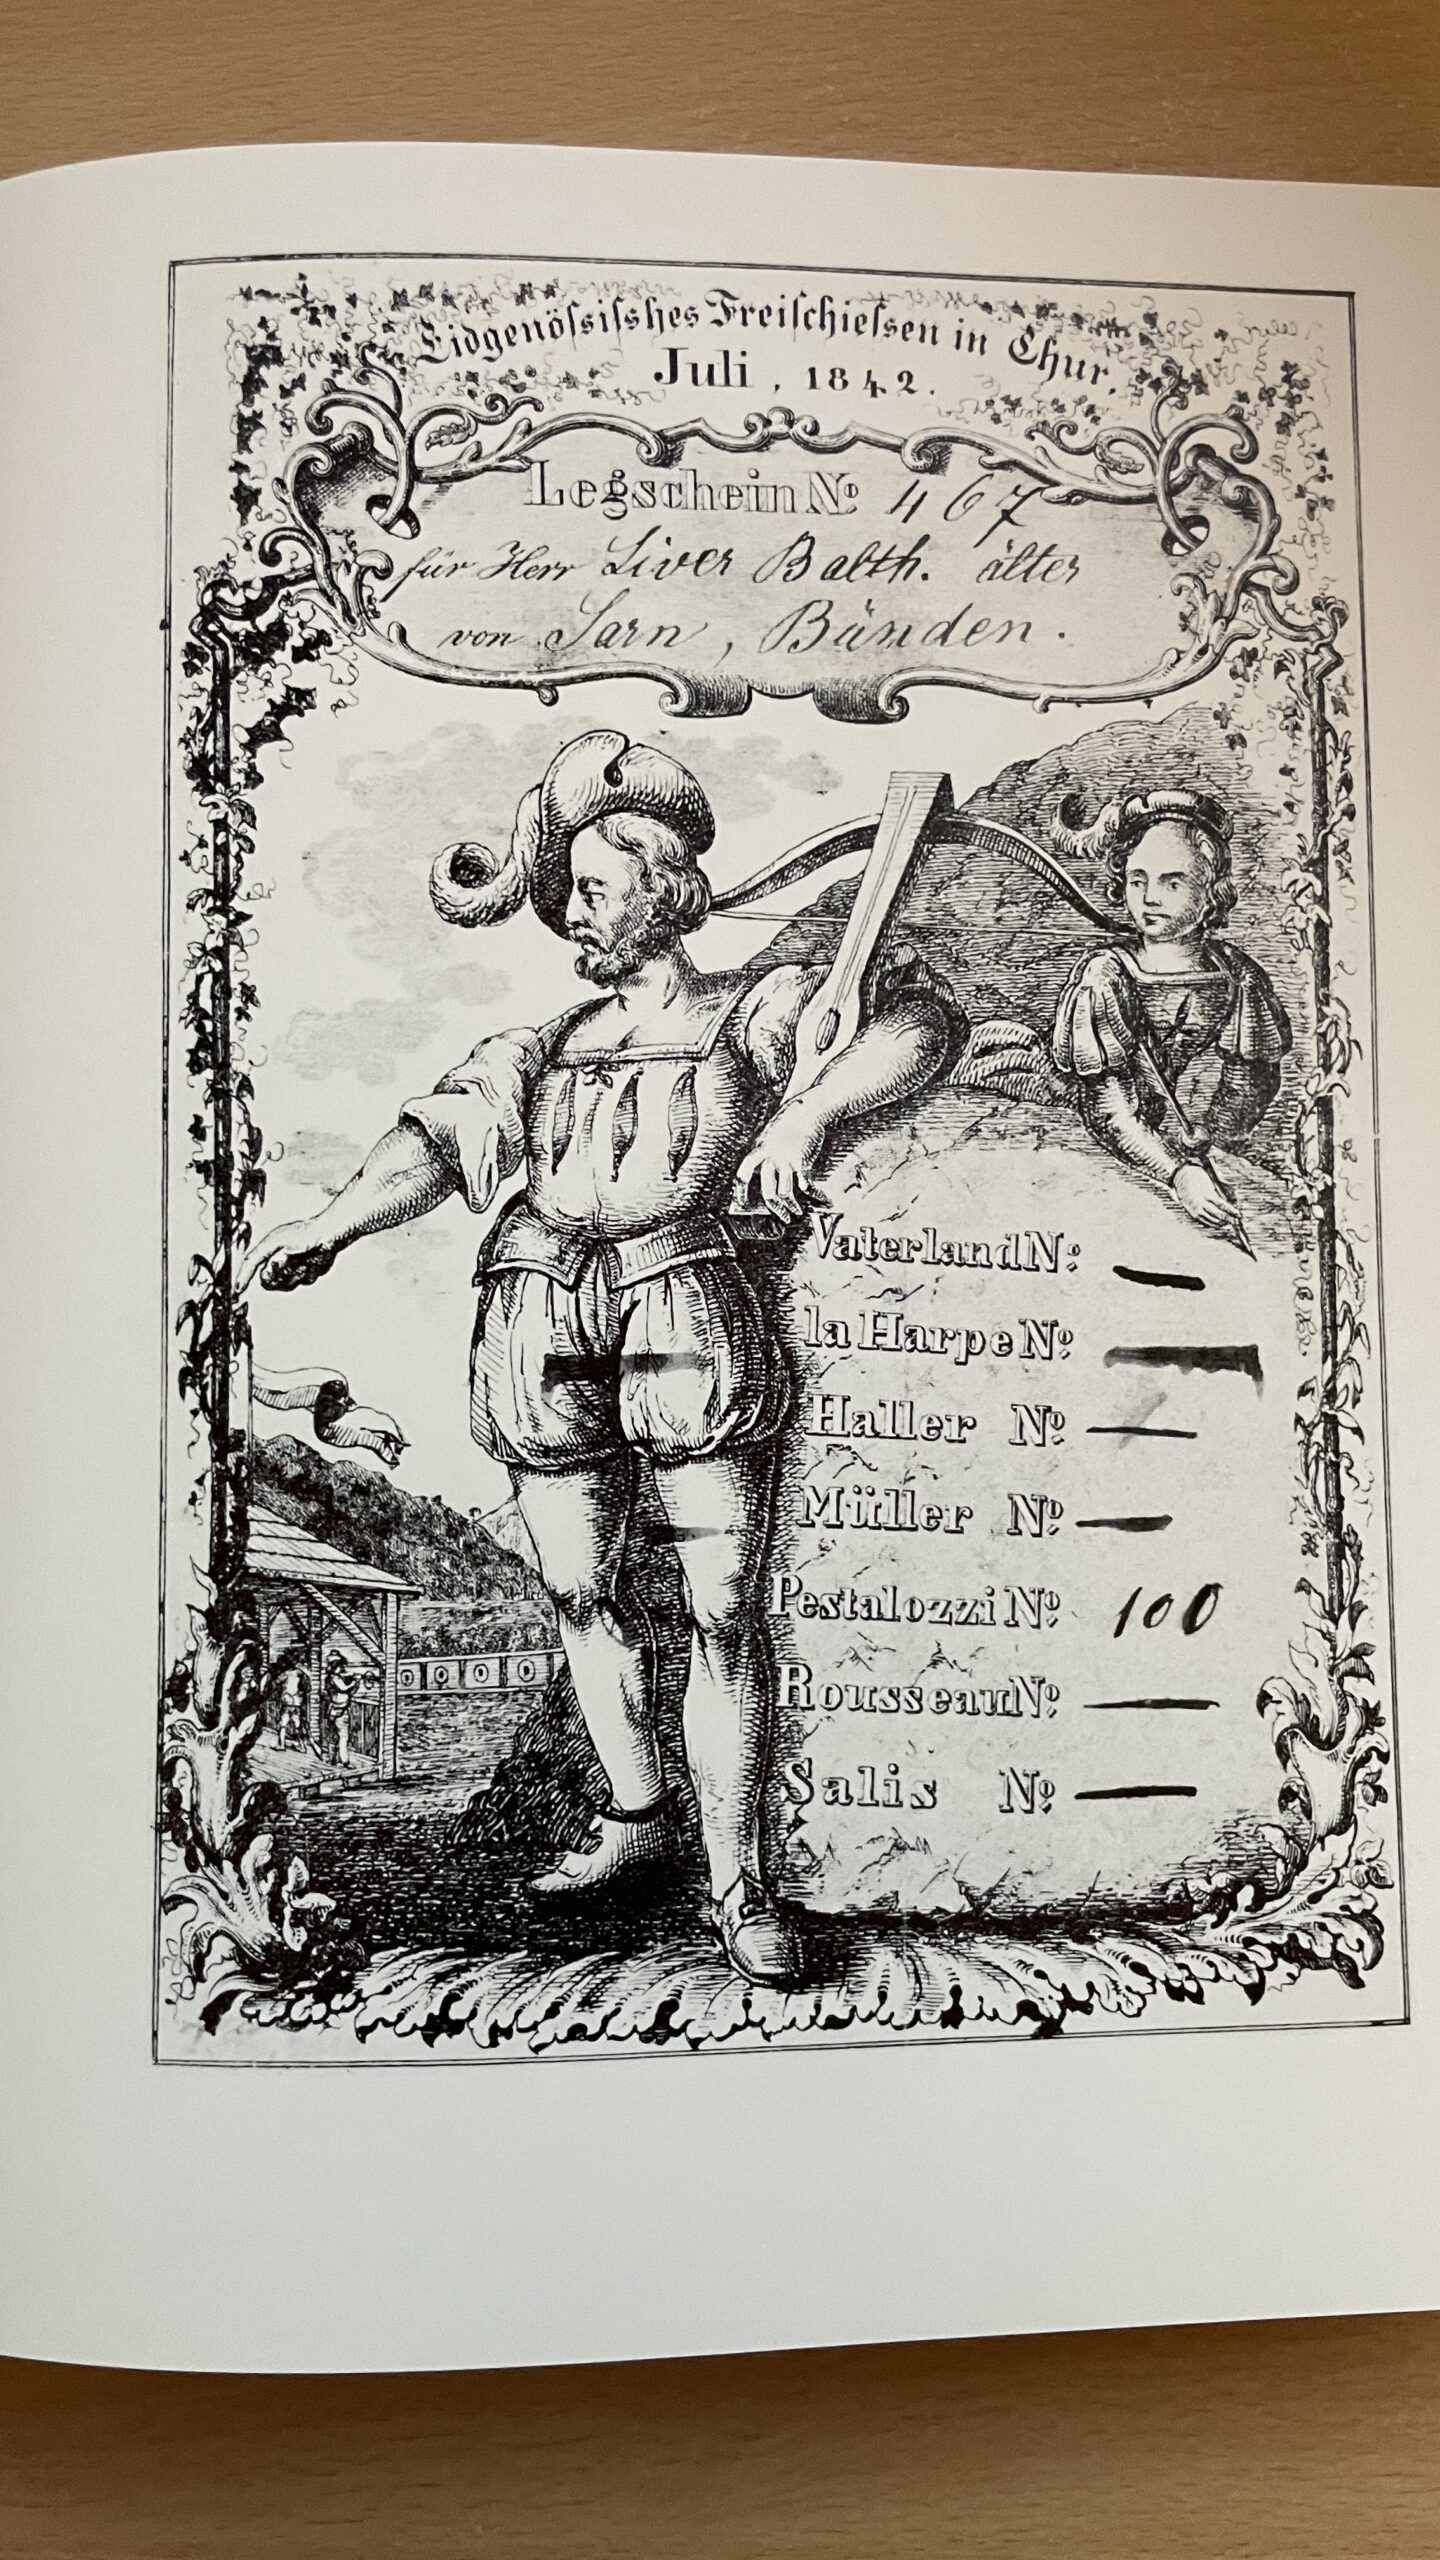 Eidgenöſsiſshes Freiſchieſsen in Chur.
Juli, 1842.
Legschein No 467
für Herr Liver Balth. älter
von Sarn, Bünden.
Vaterland No: —
la Harpe No: —
Haller No: —
Müller No: —
Pestalozzi No: 100
Rousseau No: —
Salis No: —